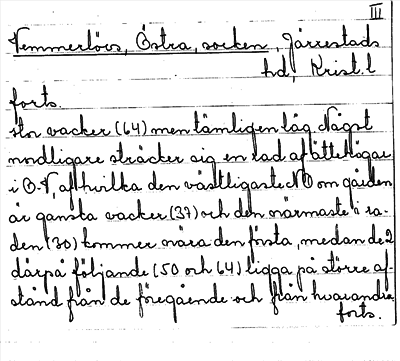 III
Vemmerlövs, Östra, socken, Järrestads
hd, Krist. l
forts.
stor vacker (64) men tämligen låg. Något
nordligare sträcker sig en rad af ättehögar
i O-V, af hvilka den västligaste NO om gården
är ganska vacker (37) och den närmaste i ra-
den (30) kommer nära den första, medan de 2
därpå följande (50 och 64) ligga på större af-
stånd från de föregående och från hvarandra.
forts.